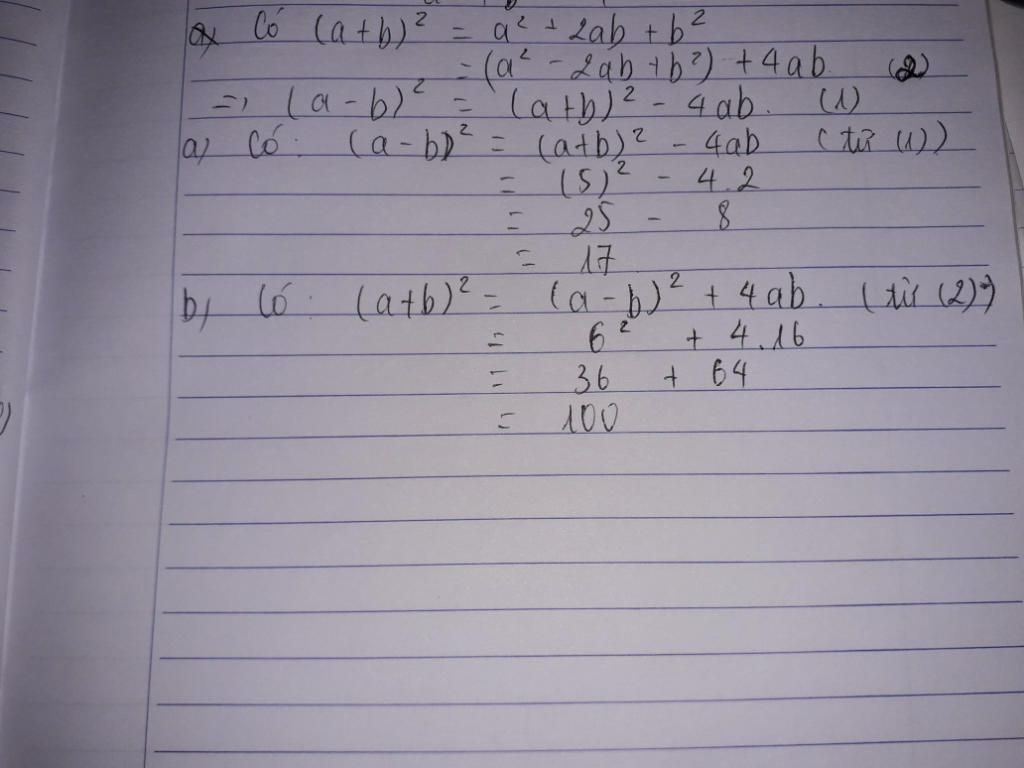 Có (a+b)² = a² + 2ab + b²
= (a² - 2ab + b²) + 4ab (2)
=> (a - b)² = (a+b)² - 4ab. (1)
a) Có: (a - b)² = (a+b)² - 4ab (từ (1))
= (5)² - 4.2
= 25 - 8
= 17
b) Có: (a+b)² = (a - b)² + 4ab. (từ (2))
= 6² + 4.16
= 36 + 64
= 100